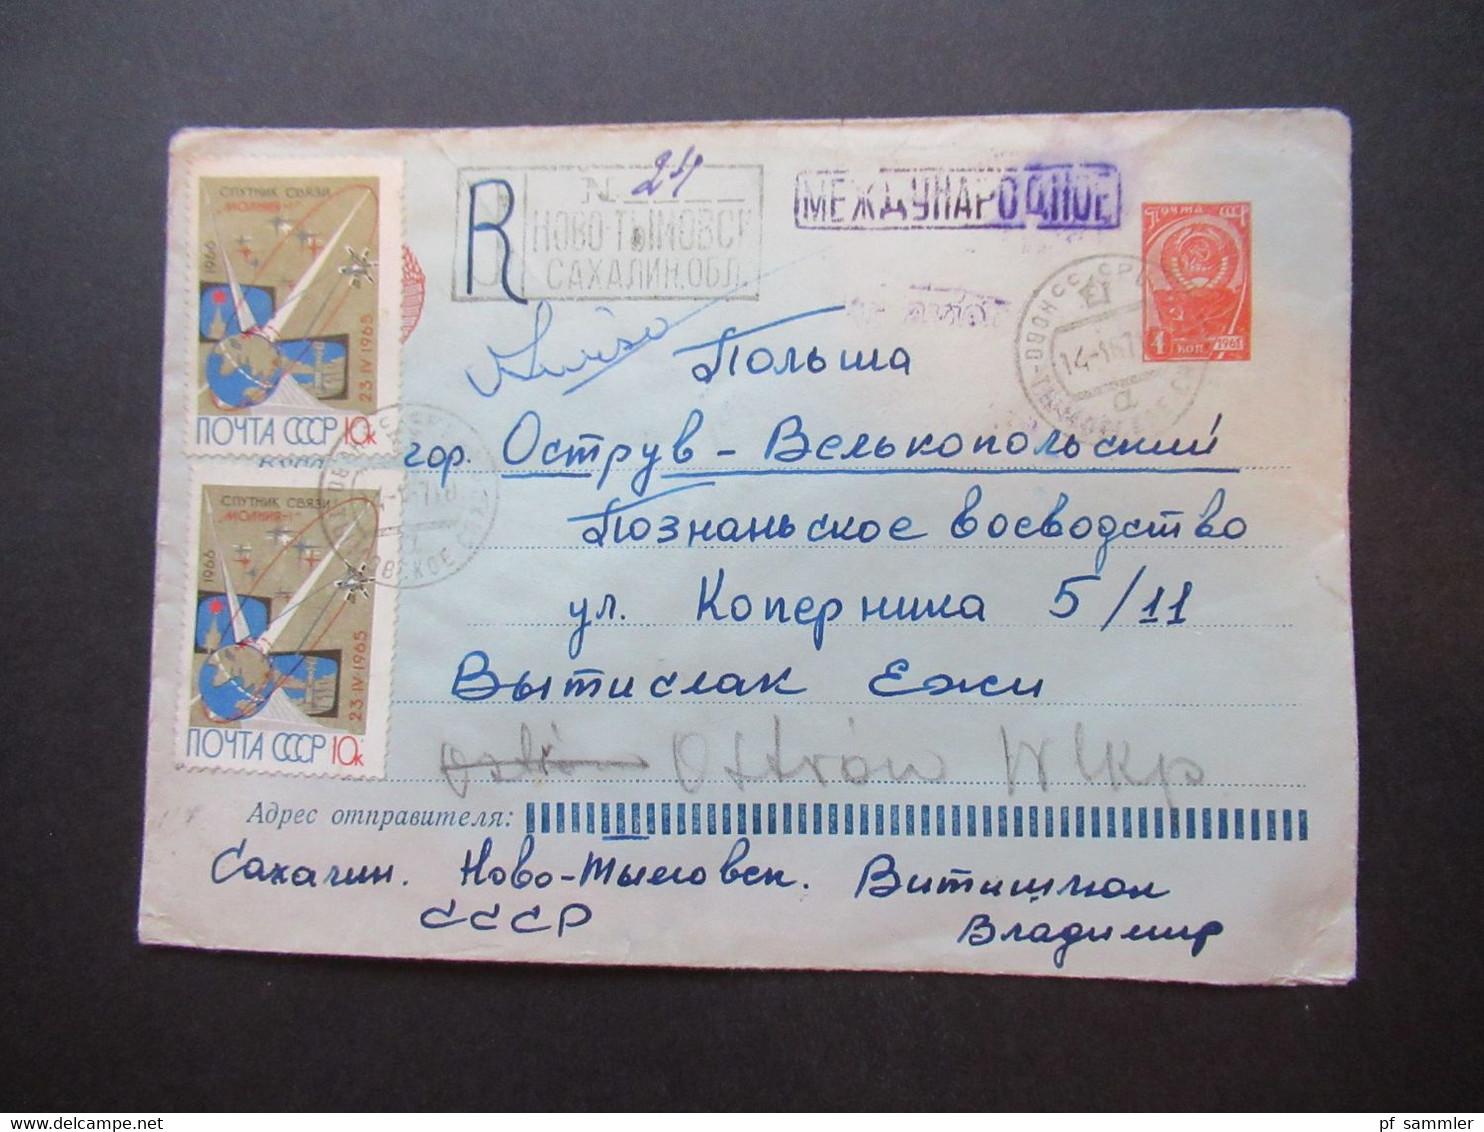 СПУТНИК СВЯЗИ
"МОЛНИЯ-1"
1966
23·IV·1965
ПОЧТА СССР 10к
СПУТНИК СВЯЗИ
"МОЛНИЯ-1"
1966
23·IV·1965
ПОЧТА СССР 10к
R
N 24
НОВО-ТЫМОВСК
САХАЛИН.ОБЛ.
МЕЖДУНАРОДНОЕ
ПОЧТА СССР
4 КОП. 1961
Avion
Польша
Куда
гор. Острув - Велькопольский
Познаньское воеводство
ул. Коперника 5/11
Вытислак Ежи
Ostrów Wlkp
Адрес отправителя:
Сахалин. Ново-Тымовск.
СССР
Владимир
pf sammler